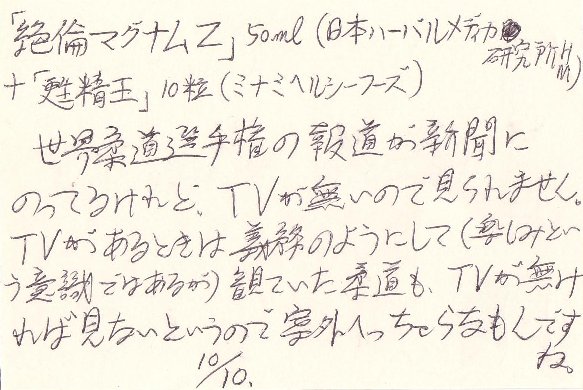 「絶倫マグナムZ」50ml(日本ハーバルメディカル
研究所HM)
+「甦精王」10粒(ミナミヘルシーフーズ)
世界柔道選手権の報道が新聞に
のってるけれど、TVが無いので見られません。
TVがあるときは義務のようにして(楽しみとい
う意識ではあるが)観ていた柔道も、TVが無け
れば見ないというので案外へっちゃらなもんです
ね。
10/10.